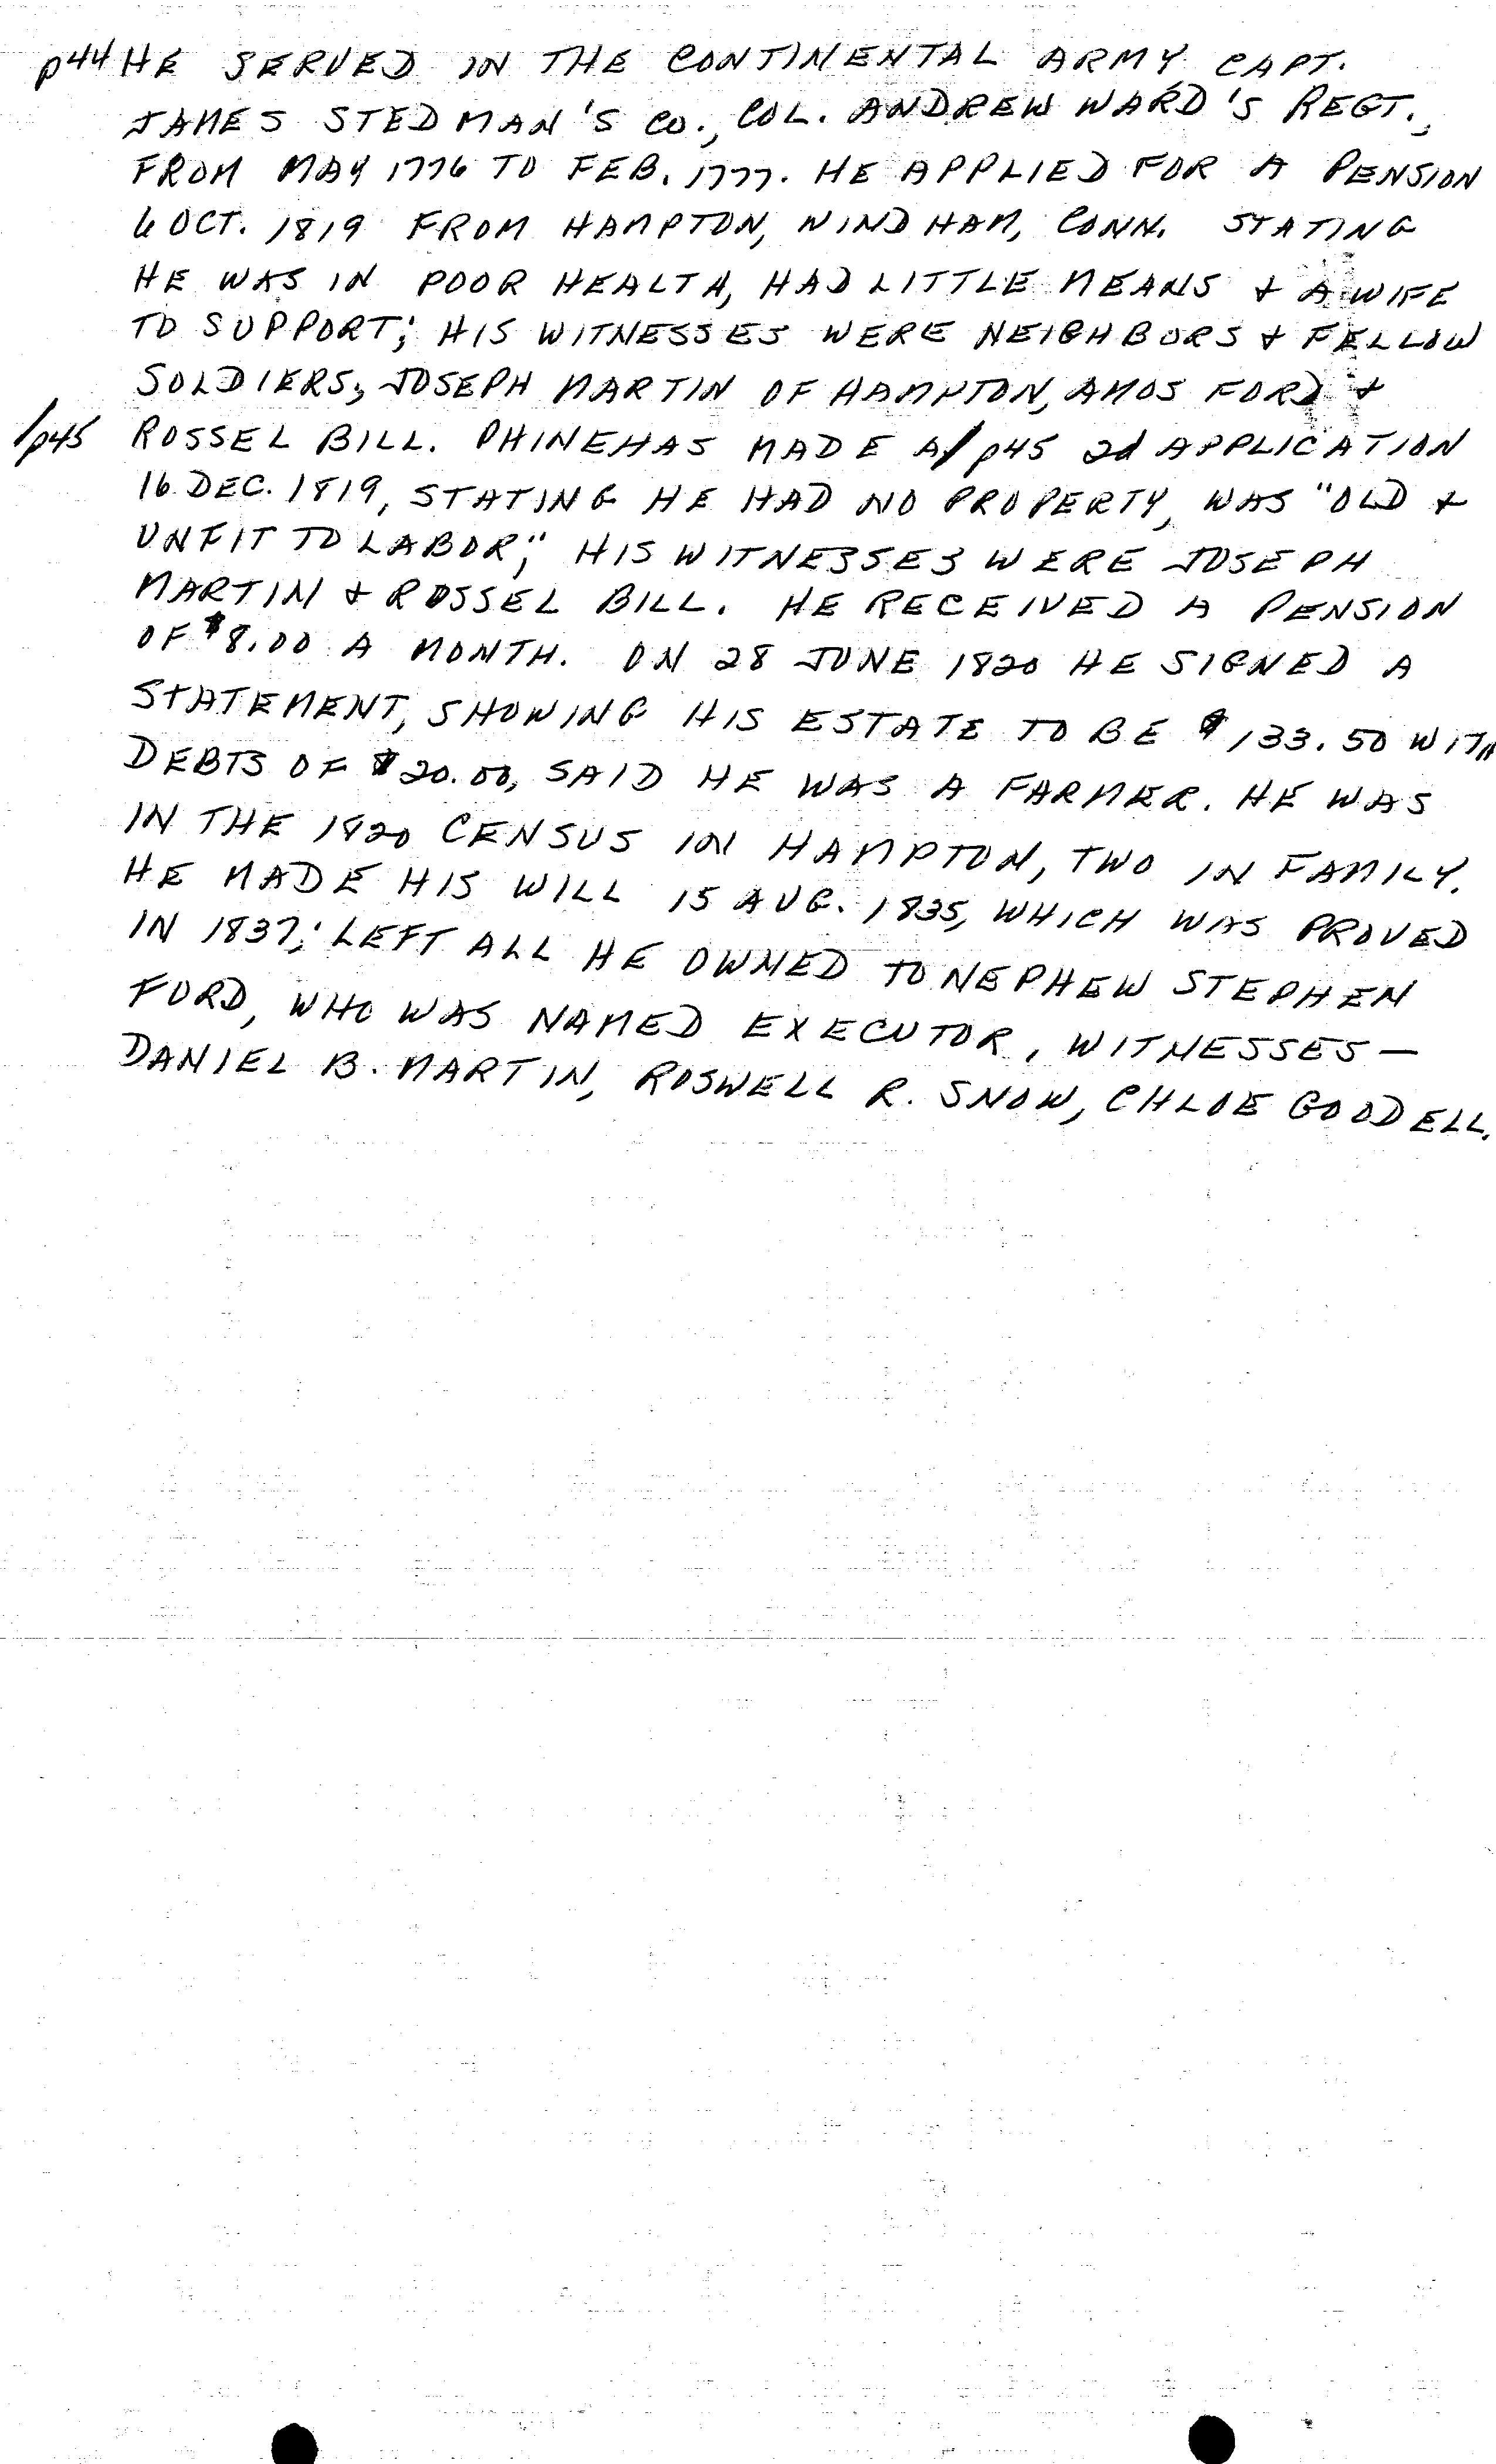 p44 HE SERVED IN THE CONTINENTAL ARMY CAPT.
JAMES STEDMAN'S CO., COL. ANDREW WARD'S REGT.,
FROM MAY 1776 TO FEB. 1777. HE APPLIED FOR A PENSION
6 OCT. 1819 FROM HAMPTON, WINDHAM, CONN. STATING
HE WAS IN POOR HEALTH, HAD LITTLE MEANS & A WIFE
TO SUPPORT; HIS WITNESSES WERE NEIGHBORS & FELLOW
SOLDIERS, JOSEPH MARTIN OF HAMPTON, AMOS FORD &
/p45 ROSSEL BILL. PHINEHAS MADE A/ p45 2d APPLICATION
16 DEC. 1819, STATING HE HAD NO PROPERTY, WAS "OLD &
UNFIT TO LABOR;" HIS WITNESSES WERE JOSEPH
MARTIN & ROSSEL BILL. HE RECEIVED A PENSION
OF $8.00 A MONTH. ON 28 JUNE 1820 HE SIGNED A
STATEMENT, SHOWING HIS ESTATE TO BE $133.50 WITH
DEBTS OF $20.00, SAID HE WAS A FARMER. HE WAS
IN THE 1820 CENSUS IN HAMPTON, TWO IN FAMILY.
HE MADE HIS WILL 15 AUG. 1835, WHICH WAS PROVED
IN 1837; LEFT ALL HE OWNED TO NEPHEW STEPHEN
FORD, WHO WAS NAMED EXECUTOR, WITNESSES —
DANIEL B. MARTIN, ROSWELL R. SNOW, CHLOE GOODELL.